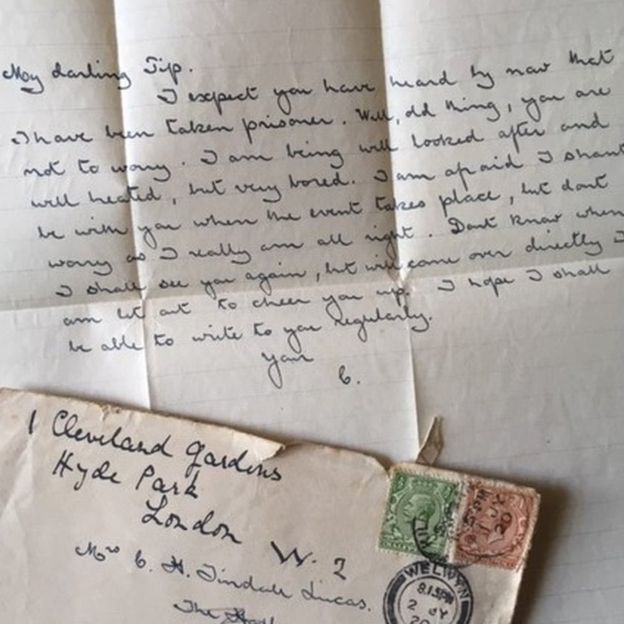 My darling Tip.
I expect you have heard by now that
I have been taken prisoner. Well, old thing, you are
not to worry. I am being well looked after and
well treated, but very bored. I am afraid I shant
be with you when the event takes place, but dont
worry as I really am all right. Dont know when
I shall see you again, but will come over directly I
am let out to cheer you up. I hope I shall
be able to write to you regularly.
Your
C.
1 Cleveland Gardens
Hyde Park
London W. 2
Mrs C. H. Tindall Lucas.
The
WELWYN
8.15PM
2 JY
20